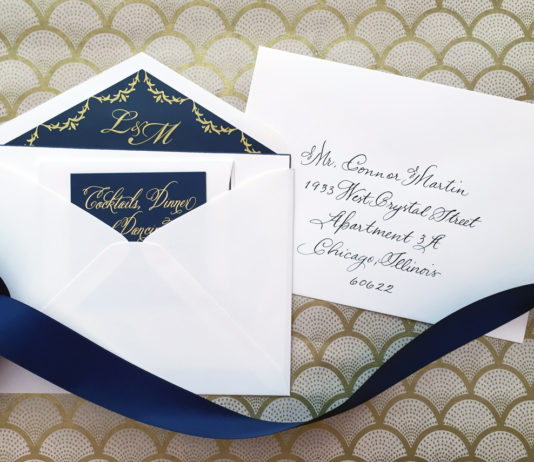 L&M
Cocktails, Dinner
Dancing
Mr. Connor Martin
1933 West Crystal Street
Apartment 3A
Chicago, Illinois
60622